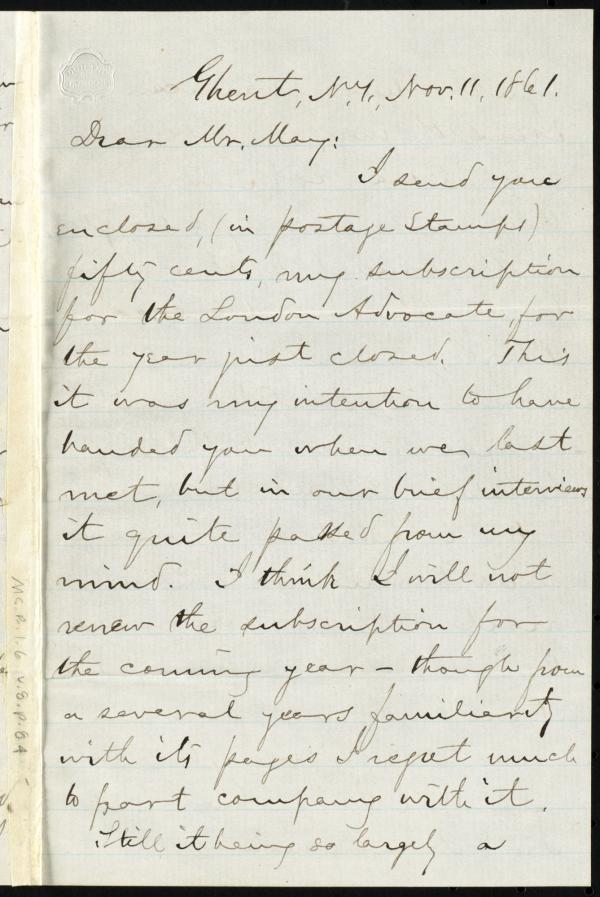 Ghent, N.Y., Nov. 11, 1861.
Dear Mr. May:
I send you
enclosed, (in postage stamps)
fifty cents, my subscription
for the London Advocate, for
the year just closed. This
it was my intention to have
handed you when we last
met, but in our brief interviews
it quite passed from my
mind. I think I will not
renew the subscription for
the coming year – though from
a several years familiarity
with its pages I regret much
to part company with it.
Still it being so largely a
MS.B.1.6 v.8, p.84